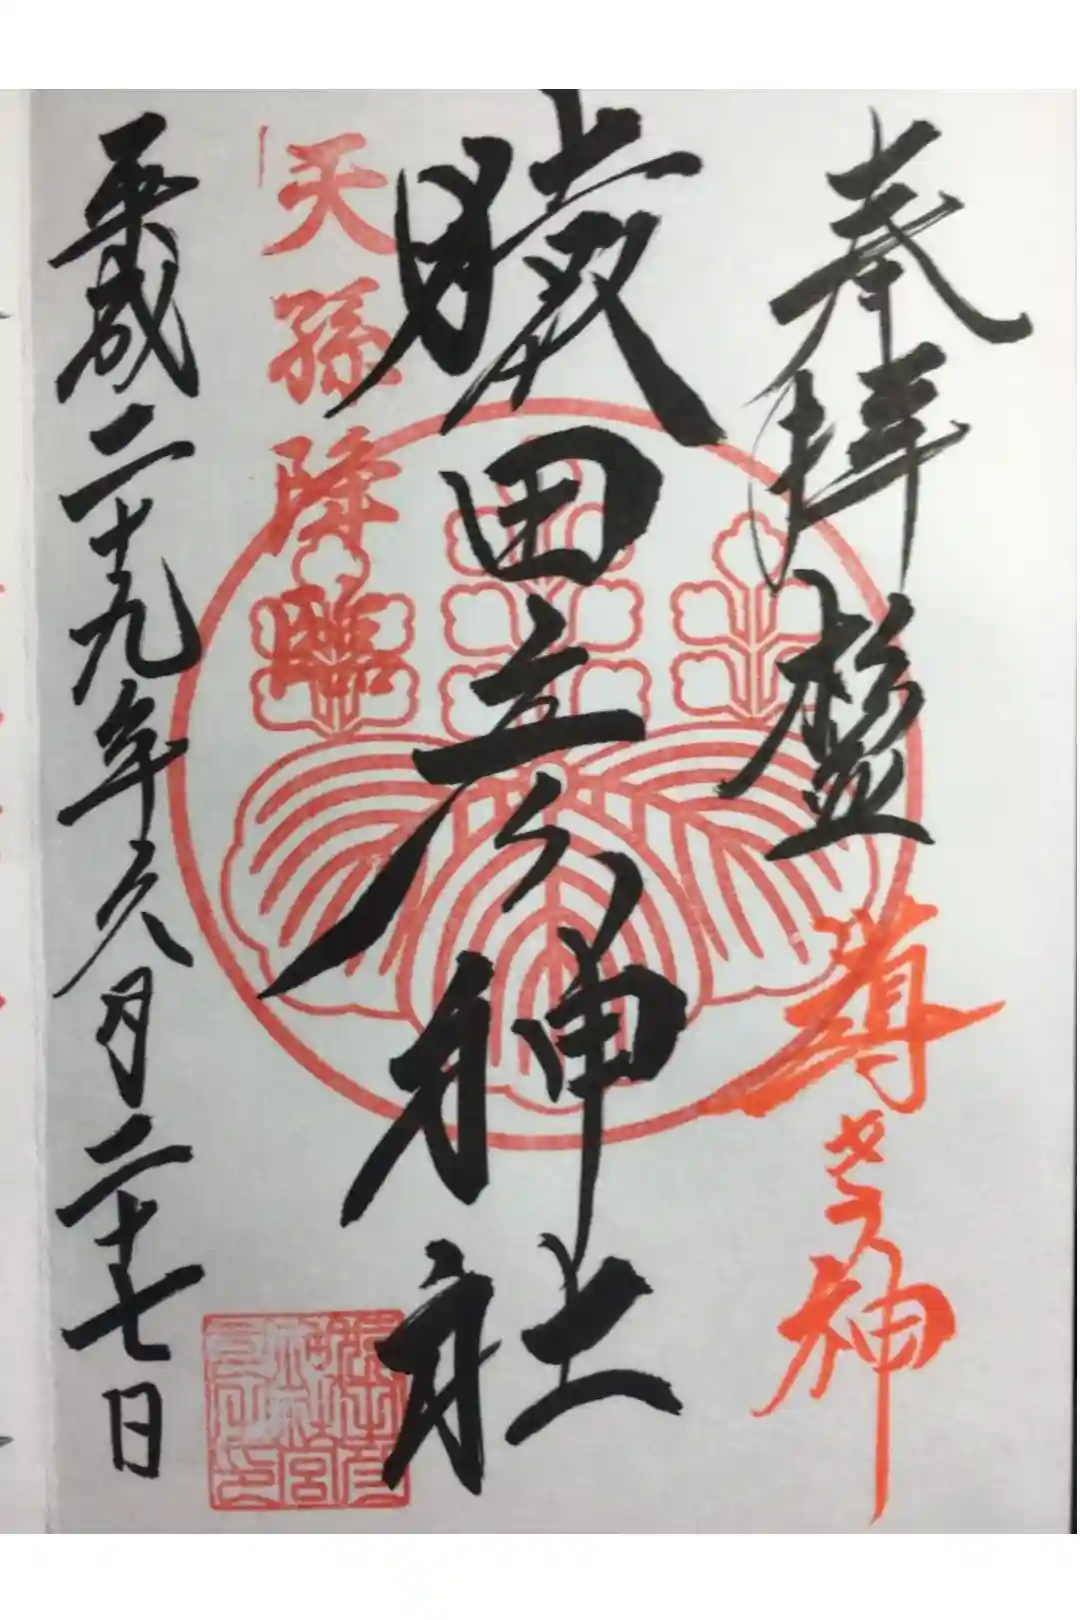 奉拝
導き乃神
猿田彦神社
天孫降臨
平成二十九年六月二十七日